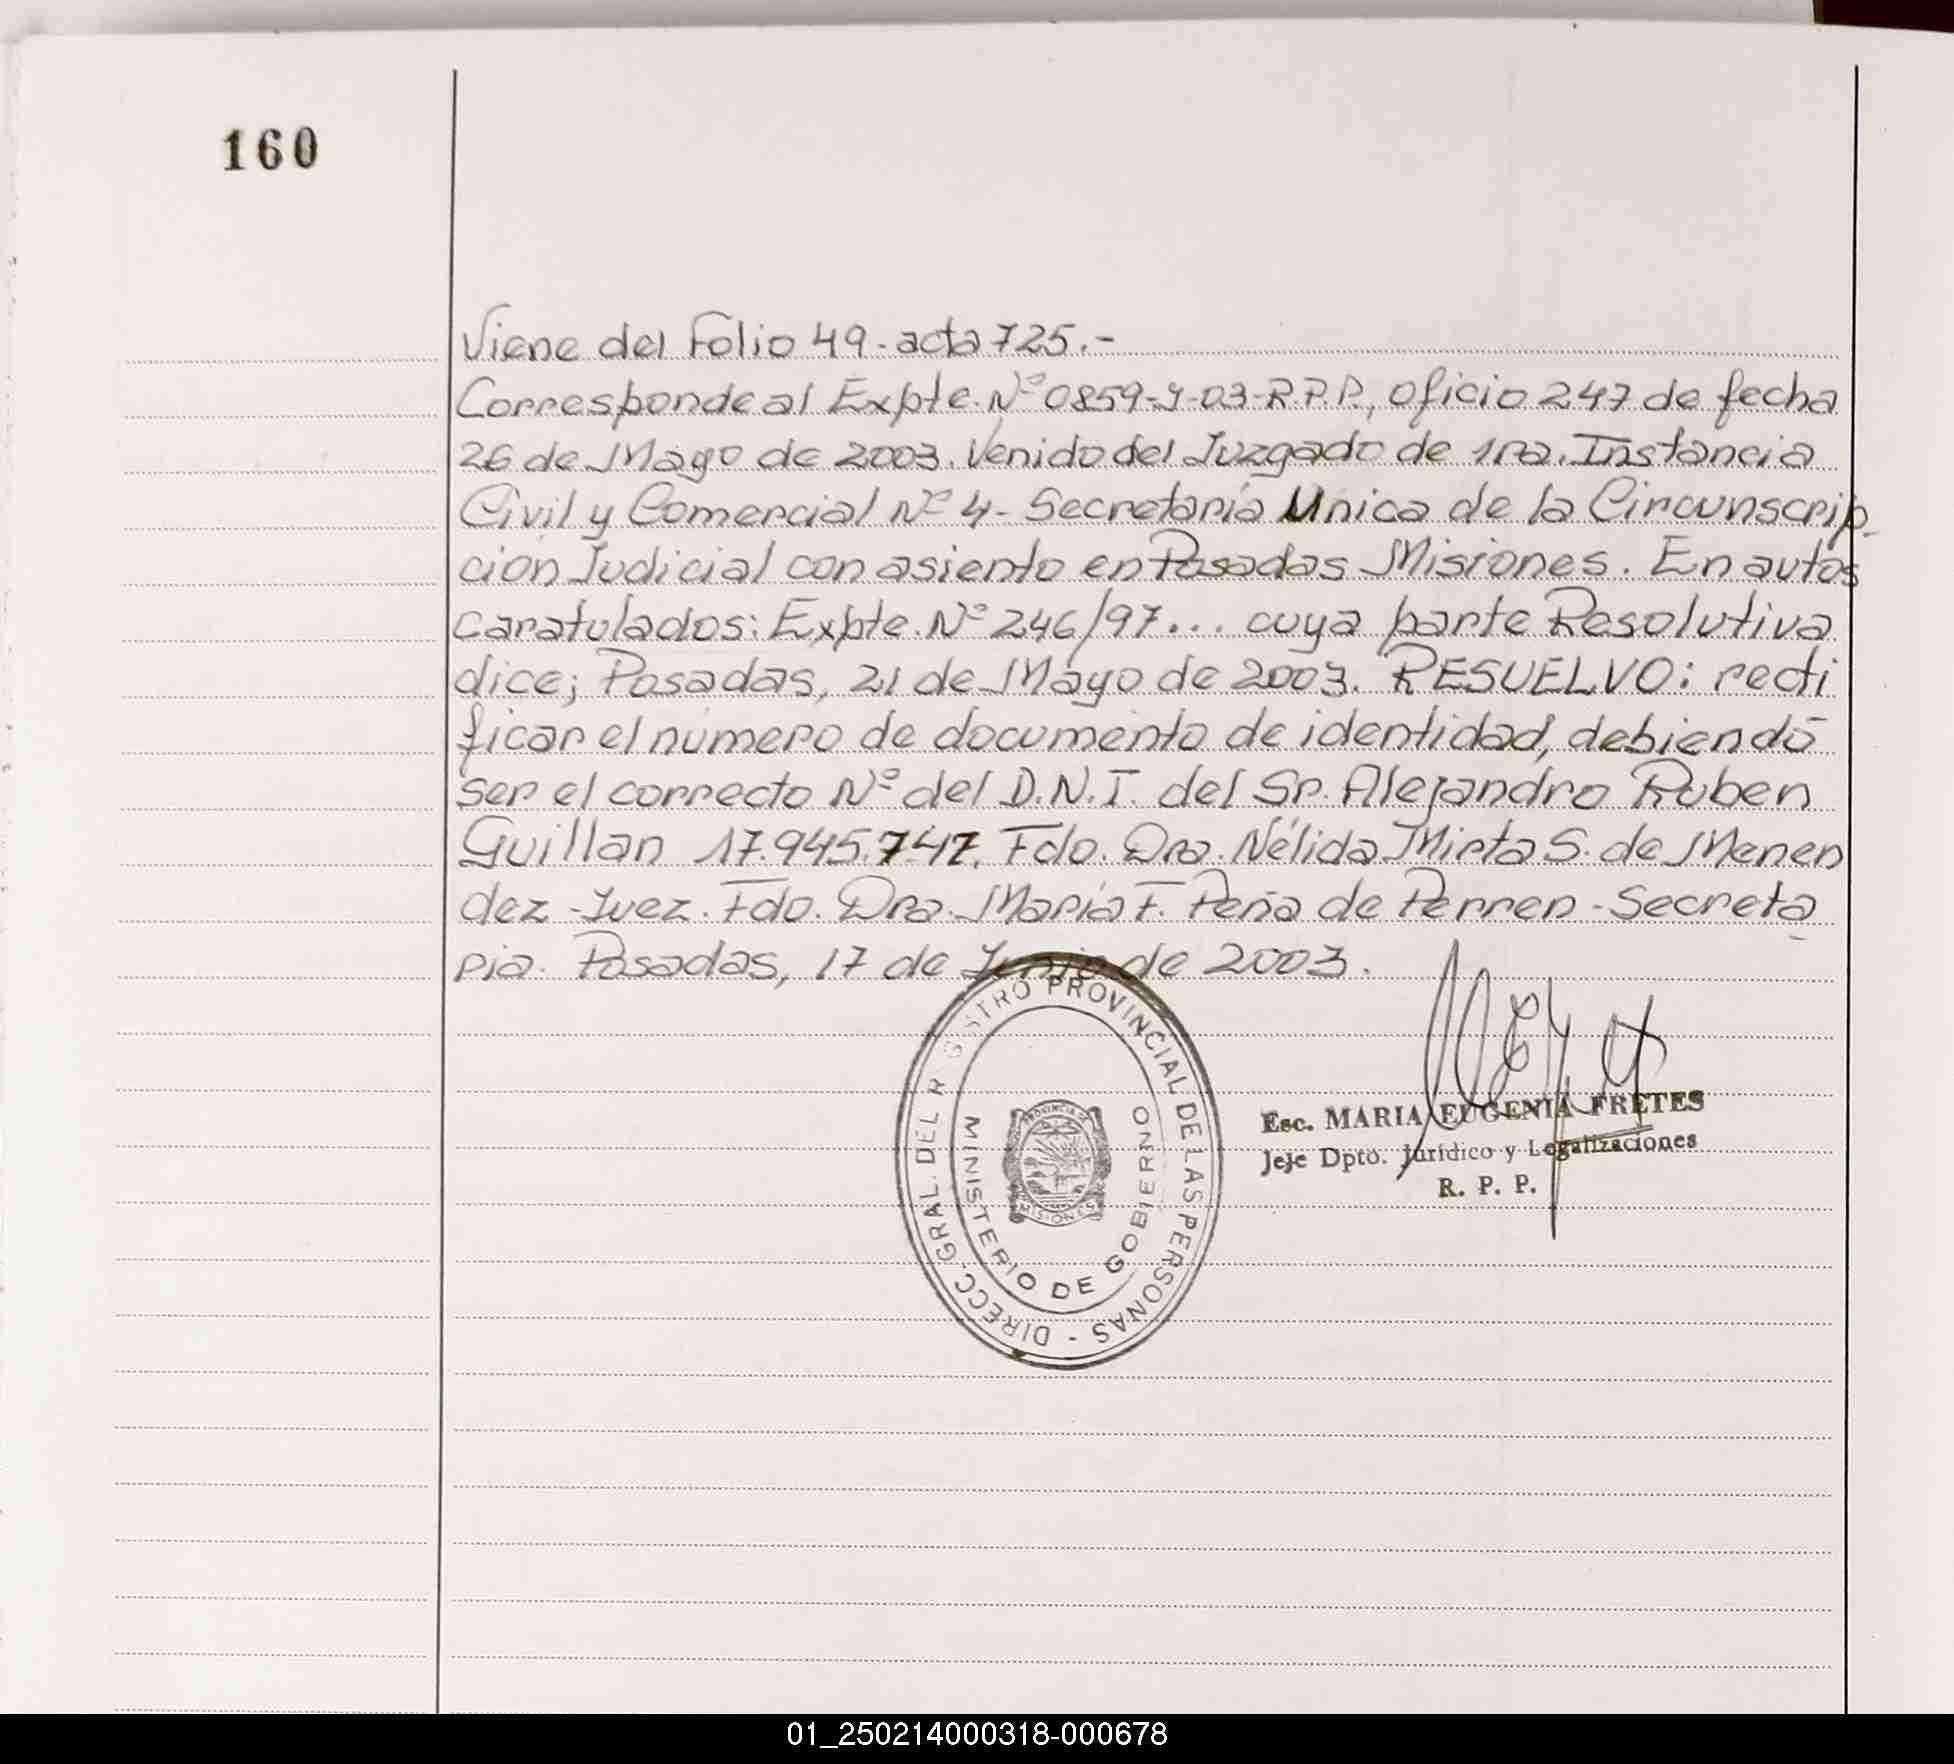 160
Viene del Folio 49-acta 725.-
Corresponde al Expte. Nº 0859-J-03-R.P.P., oficio 247 de fecha
26 de Mayo de 2003. Venido del Juzgado de 1ra. Instancia
Civil y Comercial Nº 4- Secretaría Unica de la Circunscrip-
ción Judicial con asiento en Posadas Misiones. En autos
caratulados: Expte. Nº 246/97... cuya parte Resolutiva
dice; Posadas, 21 de Mayo de 2003. RESUELVO: recti
ficar el número de documento de identidad, debiendo
ser el correcto Nº del D.N.I. del Sr. Alejandro Ruben
Guillan 17.945.747. Fdo. Dra. Nélida Mirta S. de Menen
dez-Juez. Fdo. Dra. María F. Peña de Perren-Secreta
ria. Posadas, 17 de Junio de 2003.
DIRECC. GRAL. DEL R GISTRO PROVINCIAL DE LAS PERSONAS -
MINISTERIO DE GOBIERNO
PROVINCIA DE
MISIONES
Esc. MARIA EUGENIA FRETES
Jefe Dpto. Jurídico y Legalizaciones
R. P. P.
01_250214000318-000678